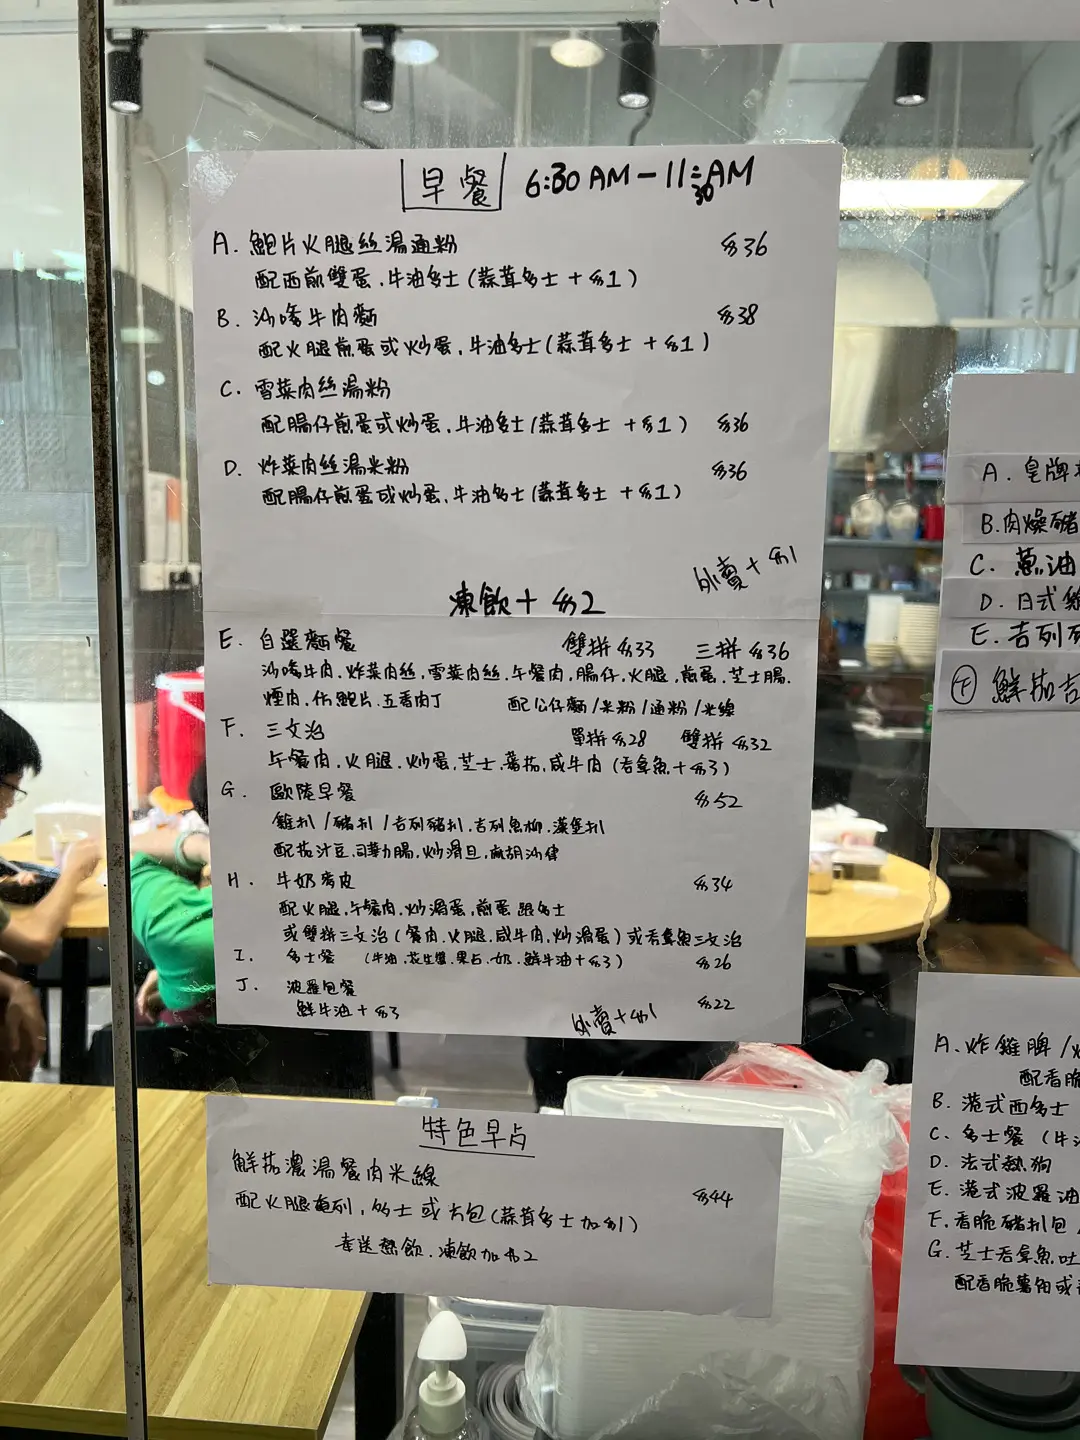 早餐 6:30AM-11:30AM
A. 鮑片火腿絲湯通粉 $36
配西煎雙蛋、牛油多士(蒜茸多士+$1)
B. 沙嗲牛肉麵 $38
配火腿煎蛋或炒蛋、牛油多士(蒜茸多士+$1)
C. 雪菜肉絲湯粉
配腸仔煎蛋或炒蛋、牛油多士(蒜茸多士+$1) $36
D. 炸菜肉絲湯米粉 $36
配腸仔煎蛋或炒蛋、牛油多士(蒜茸多士+$1)
外賣+$1
凍飲+$2
E. 自選麵餐 雙拼$33 三拼$36
沙嗲牛肉、炸菜肉絲、雪菜肉絲、午餐肉、腸仔、火腿、煎蛋、芝士腸、
煙肉、仿鮑片、五香肉丁 配公仔麵/米粉/通粉/米線
F. 三文治 單拼$28 雙拼$32
午餐肉、火腿、炒蛋、芝士、蕃茄、咸牛肉(吞拿魚+$3)
G. 歐陸早餐 $52
雞扒/豬扒/吉列豬扒、吉列魚柳、漢堡扒
配茄汁豆、司華力腸、炒滑旦、麻胡沙律
H. 牛奶麥皮 $34
配火腿、午餐肉、炒滑蛋、煎蛋跟多士
或雙拼三文治(餐肉、火腿、咸牛肉、炒滑蛋)或吞拿魚三文治
I. 多士餐 (牛油、花生醬、果占、奶、鮮牛油+$3) $26
J. 波羅包餐 $22
鮮牛油+$3
外賣+$1
特色早點
鮮茄濃湯餐肉米線
配火腿奄列,多士或方包(蒜茸多士加$1) $44
幸送熱飲、凍飲加$2
A. 皇牌
B. 肉燥豬
C. 蔥油
D. 日式
E. 吉列
F 鮮茄
A. 炸雞脾/
配香脆
B. 港式西多士
C. 多士餐(牛
D. 法式熱狗
E. 港式波羅油
F. 香脆豬扒包
G. 芝士吞拿魚吐
配香脆薯角或